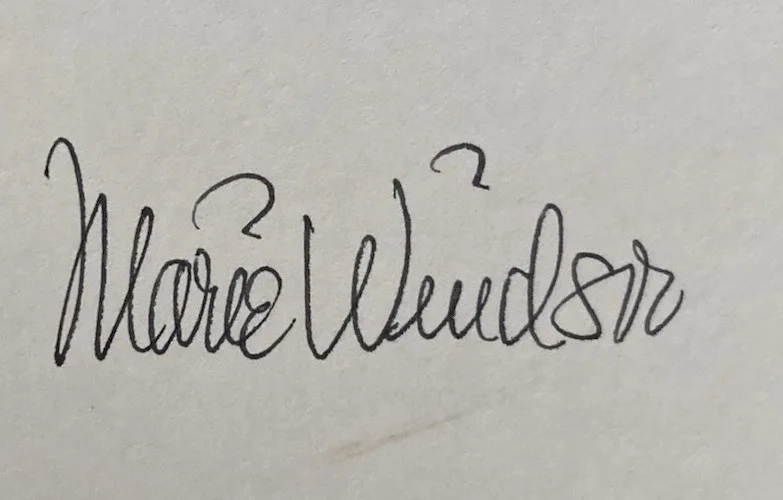 Marie Windsor